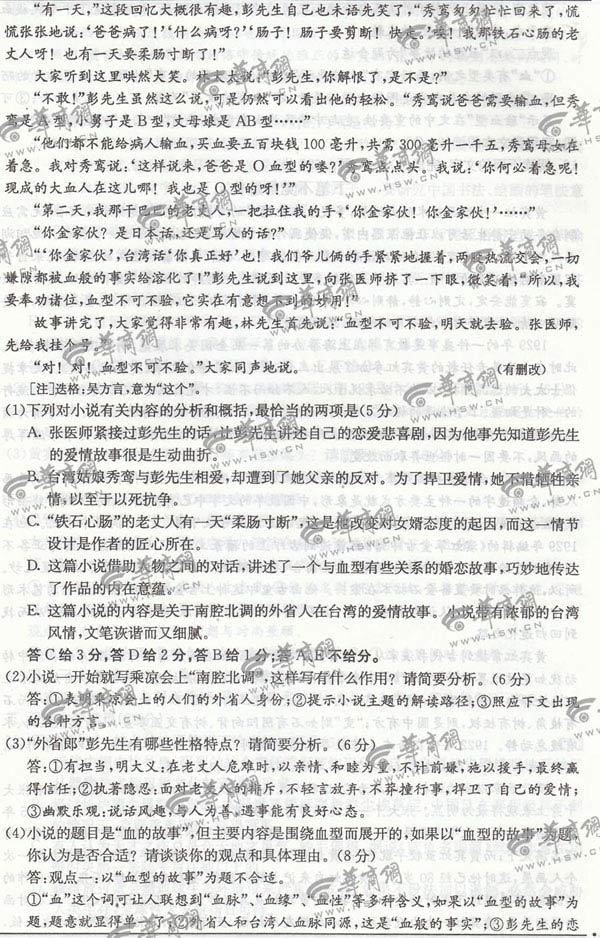 “有一天,”这段回忆大概很有趣,彭先生自己也未语先笑了,“秀鸾匆匆忙忙回来了,慌
慌张张地说:‘爸爸病了!’‘什么病呀?’‘肠子!肠子要剪断!快走!’喽!我那铁石心肠的老
丈人呀!也有一天要柔肠寸断了!”
大家听到这里哄然大笑。林太太说:“彭先生,你解恨了,是不是?”
“不敢!”彭先生虽然这么说,可是仍然可以看出他的轻松。“秀鸾说爸爸需要输血,但秀
鸾是A型,小舅子是B型,丈母娘是AB型……”
“他们都不能给病人输血,买血要五百块钱100毫升,共需300毫升一千五,秀鸾母女在
着急。我对秀鸾说:‘这样说来,爸爸是O血型的喽?’秀鸾点点头。我说:‘你何必着急呢!
现成的大血人在这儿哪!我也是O型的呀!’”
“第二天,我那干巴巴的老丈人,一把拉住我的手,‘你金家伙!你金家伙!’……”
“你金家伙?是日本话,还是骂人的话?”
“‘你金家伙’,台湾话‘你真正好’也!我们爷儿俩的手紧紧地握着,两股热流交会,一切
嫌隙都被血般的事实给溶化了!”彭先生说到这里,向张医师挤了一下眼,微笑着,“所以,我
要奉劝诸位,血型不可不验,它实在有意想不到的妙用!”
故事讲完了,大家觉得非常有趣,林先生首先说:“血型不可不验,明天就去验。张医师,
先给我挂个号。”
“对!对!血型不可不验。”大家同声地说。
(有删改)
[注]迭格:吴方言,意为“这个”。
(1)下列对小说有关内容的分析和概括,最恰当的两项是(5分)
A. 张医师紧接过彭先生的话,让彭先生讲述自己的恋爱悲喜剧,因为他事先知道彭先生
的爱情故事很是生动曲折。
B. 台湾姑娘秀鸾与彭先生相爱,却遭到了她父亲的反对。为了捍卫爱情,她不惜牺牲亲
情,以至于以死抗争。
C. “铁石心肠”的老丈人有一天“柔肠寸断”,这是他改变对女婿态度的起因,而这一情节
设计是作者的匠心所在。
D. 这篇小说借助人物之间的对话,讲述了一个与血型有些关系的婚恋故事,巧妙地传达
了作品的内在意蕴。
E. 这篇小说的内容是关于南腔北调的外省人在台湾的爱情故事。小说带有浓郁的台湾
风情,文笔诙谐而又细腻。
答C给3分,答D给2分,答B给1分;答A、E不给分。
(2)小说一开始就写乘凉会上“南腔北调”,这样写有什么作用?请简要分析。(6分)
答:①表明乘凉会上的人们的外省人身份;②提示小说主题的解读路径;③照应下文出现
的各种方言。
(3)“外省郎”彭先生有哪些性格特点?请简要分析。(6分)
答:①有担当,明大义:在老丈人危难时,以亲情、和睦为重,不计前嫌,施以援手,最终赢
得信任;②执著隐忍:面对老丈人的排斥,不轻言放弃,不莽撞行事,捍卫了自己的爱情;
③幽默乐观:说话风趣,与人为善,遇事能有良好心态。
(4)小说的题目是“血的故事”,但主要内容是围绕血型而展开的,如果以“血型的故事”为题,
你认为是否合适?请谈谈你的观点和具体理由。(8分)
答:观点一:以“血型的故事”为题不合适。
①“血”这个词可让人联想到“血脉”、“血缘”、“血性”等多种含义,如果以“血型的故事”为
题,题意就显得单一了;②外省人和台湾人血脉同源,这是“血般的事实”;③彭先生的恋
华育网
WWW.HSW.CN